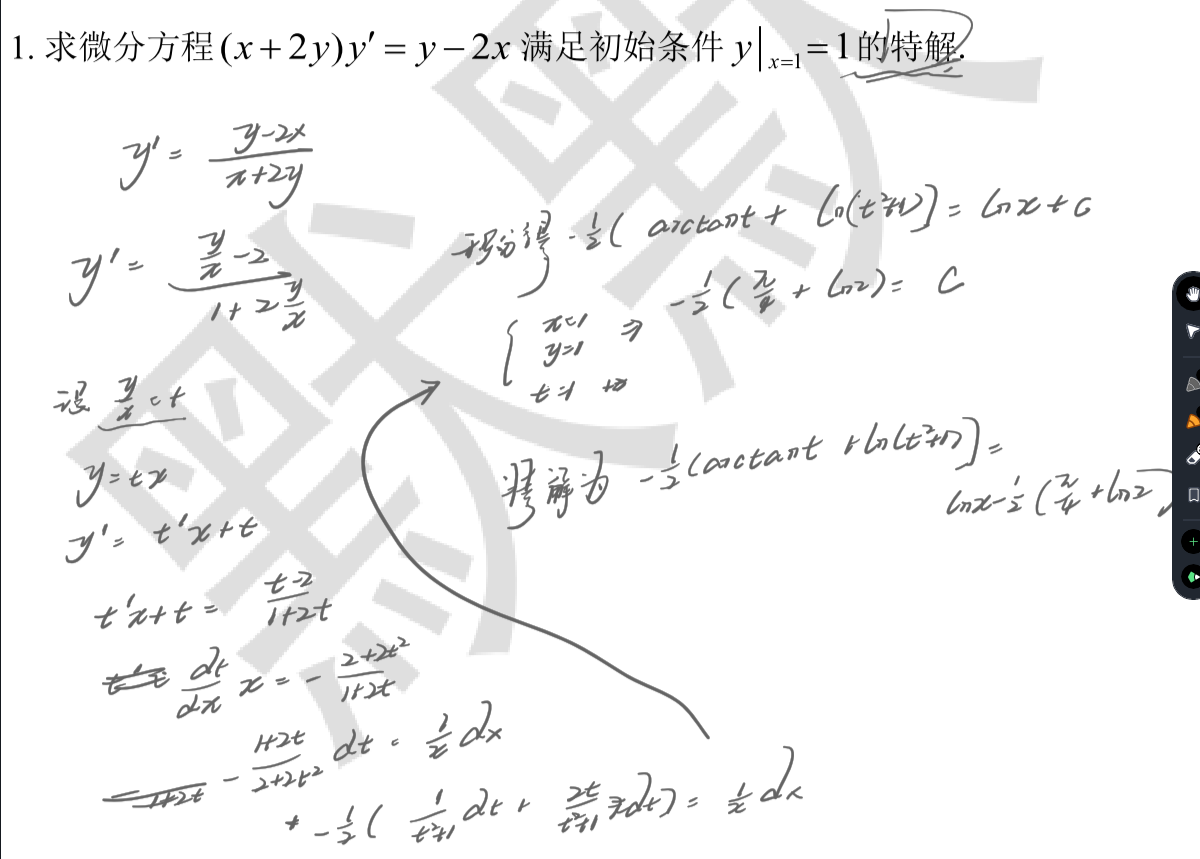 1. 求微分方程(x+2y)y′=y−2x 满足初始条件 y|ₓ₌₁=1的特解.
y' = (y-2x)/(x+2y)
y' = (y/x - 2)/(1+2 y/x)
设 y/x = t
y = tx
y' = t'x+t
t'x+t = (t-2)/(1+2t)
dt/dx x = - (2+2t²)/(1+2t)
- (1+2t)/(2+2t²) dt = 1/x dx
-1/2 ( 1/(t²+1) dt + 2t/(t²+1) dt) = 1/x dx
积分得 -1/2 ( arctant + ln(t²+1)] = lnx + C
{ x=1
y=1 ⇒ -1/2 (π/4 + ln2) = C
t=1
特解为 -1/2 (arctant + ln(t²+1)] =
lnx - 1/2 (π/4 + ln2)
黑